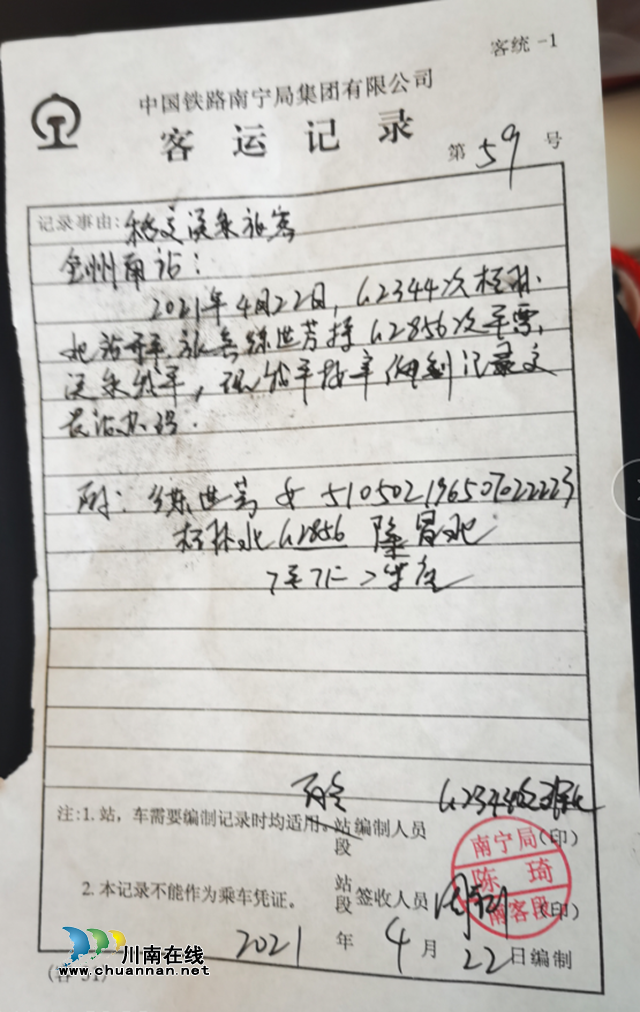 客统 -1
中国铁路南宁局集团有限公司
客运记录
第 59 号
记录事由: 移交误乘旅客
全州南站:
2021年4月22日, G2344次桂林
北站开车, 旅客练世芳持G2856次车票,
误乘我车, 现
交
贵站办理.
附: 练世芳 女 510502196507022223
桂林北 G2856 隆昌北
二等座
G2344次
注:1. 站，车需要编制记录时均适用。
站
段
编制人员
(印)
南宁局
陈琦
南客段
2. 本记录不能作为乘车凭证。
站
段
签收人员
(印)
2021 年 4 月 22 日编制
川南在线
www.chuannan.net